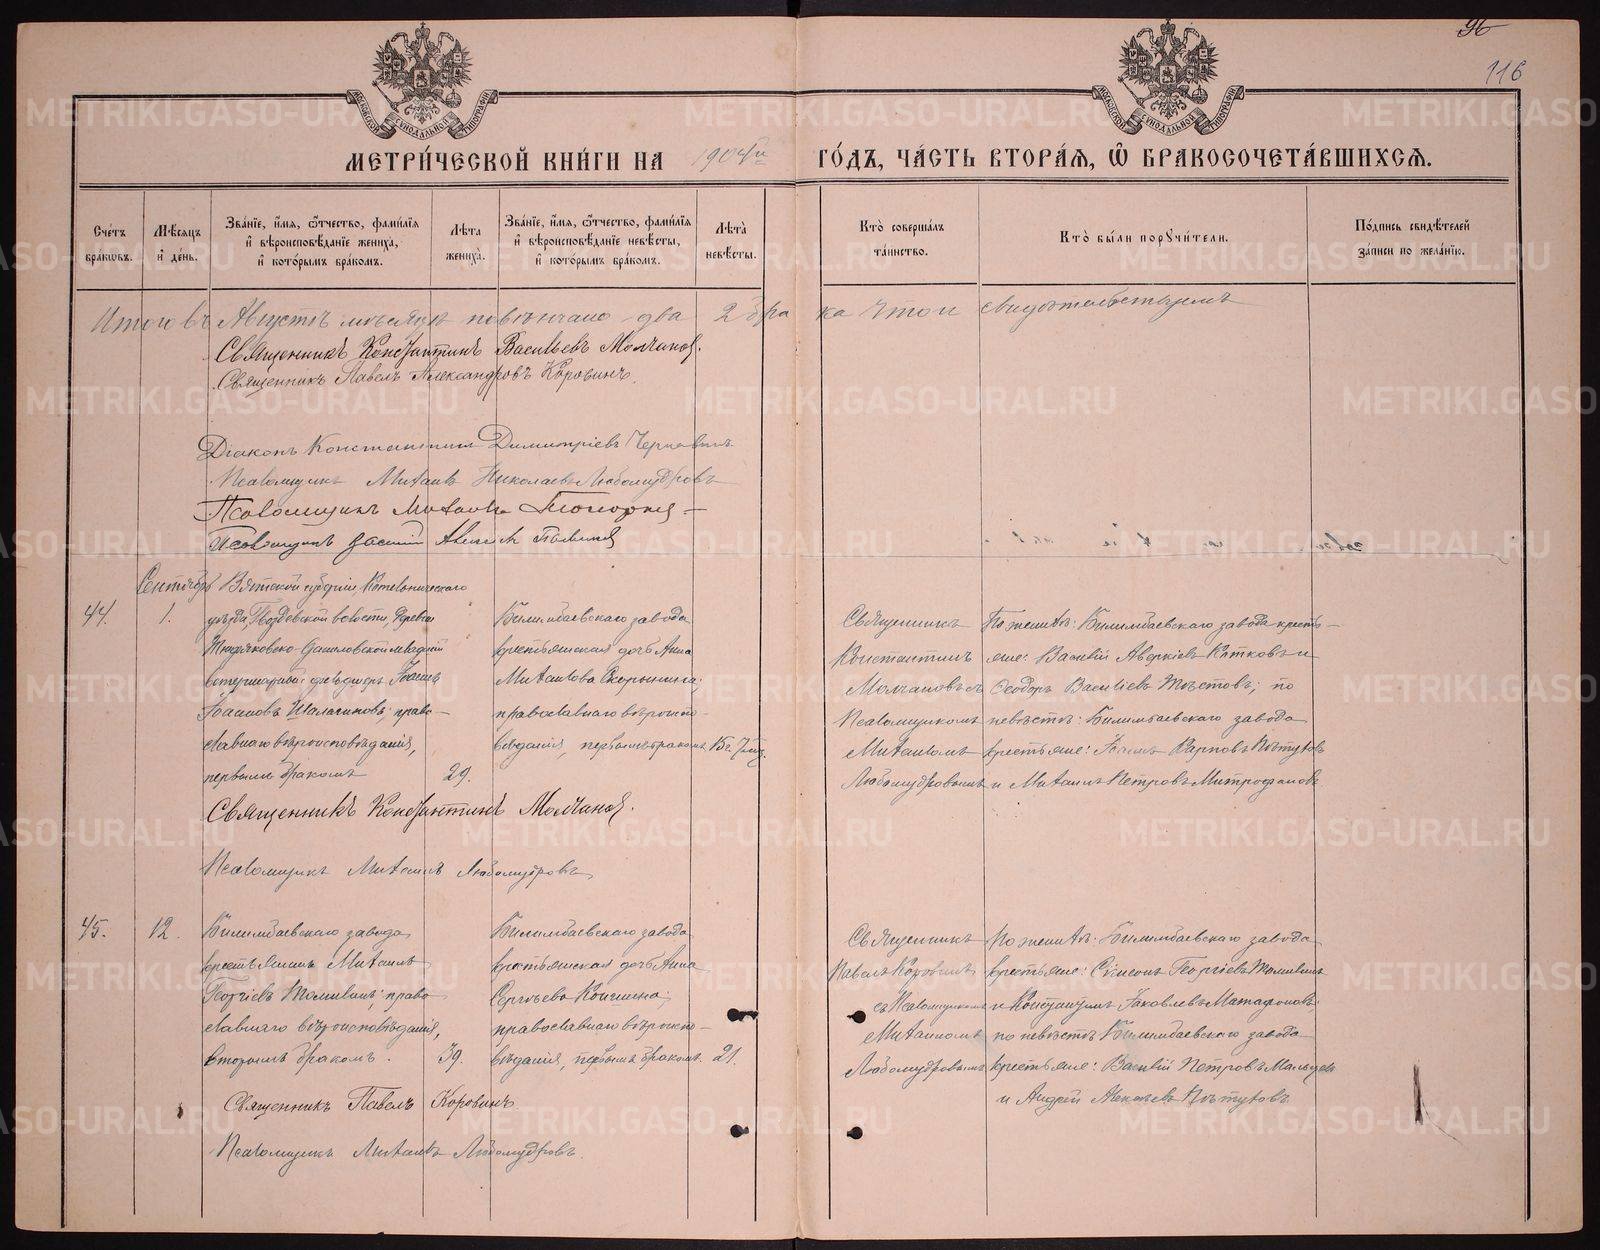 96
116
МЕТРИ́ЧЕСКОЙ КНИ́ГИ НА 1904й ГО́ДЪ, ЧА́СТЬ ВТОРА́Я, Ѽ БРАКОСОЧЕТА́ВШИХСЯ.
Сче́тъ бра́кѡвъ.
Мѣ́сяцъ и҆ де́нь.
Зва́нїе, и҆́мя, ѻ҆́тчество, фами́лїя и҆ вѣроисповѣ́данїе жениха̀, и҆ кото́рымъ бра́комъ.
Лѣ́та жениха̀.
Зва́нїе, и҆́мя, ѻ҆́тчество, фами́лїя и҆ вѣроисповѣ́данїе невѣ́сты, и҆ кото́рымъ бра́комъ.
Лѣ́та невѣ́сты.
Кто̀ соверша́лъ та́инство.
Кто̀ бы́ли поручи́тели.
По́дпись свидѣ́телей за́писи по жела́нїю.
Итого въ Августѣ мѣсяцѣ повѣнчано два 2 брака что и свидѣтельствуемъ
Священникъ Константинъ Васильевъ Молчановъ.
Священникъ Павелъ Александровъ Коровинъ.
Діаконъ Константинъ Димитріевъ Чернавинъ
Псаломщикъ Михаилъ Николаевъ Любомудровъ
Псаломщикъ Михаилъ
Псаломщикъ Василій
Сентябрь
44.
1.
Вятской губерніи, Котельническаго
уѣзда, Гвоздевской волости, деревни
ветеринарный фельдшеръ Іоаннъ
Іоанновъ Шалагиновъ; право-
славнаго вѣроисповѣданія,
первымъ бракомъ
29.
Билимбаевскаго завода
крестьянская дочь Анна
Михаилова Скорынина;
православнаго вѣроиспо-
вѣданія, первымъ бракомъ
Священникъ
Константинъ
Молчановъ съ
Псаломщикомъ
Михаиломъ
Любомудровымъ
По женихѣ: Билимбаевскаго завода кресть-
яне: Василій Аверкіевъ Вятковъ и
Ѳеодоръ Васильевъ; по
невѣстѣ: Билимбаевскаго завода
крестьяне: Карповъ Пѣтуховъ
и Михаилъ Петровъ Митрофановъ
Священникъ Константинъ Молчановъ.
Псаломщикъ Михаилъ Любомудровъ
45.
12.
Билимбаевскаго завода
крестьянинъ Михаилъ
Георгіевъ Томилинъ; право-
славнаго вѣроисповѣданія,
вторымъ бракомъ.
39.
Билимбаевскаго завода
крестьянская дочь Анна
Сергѣева;
православнаго вѣроиспо-
вѣданія, первымъ бракомъ.
21.
Священникъ
Павелъ Коровинъ
съ Псаломщикомъ
Михаиломъ
Любомудровымъ
По женихѣ: Билимбаевскаго завода
крестьяне: Симеонъ Георгіевъ Томилинъ
и Яковлевъ;
по невѣстѣ Билимбаевскаго завода
крестьяне: Василій Петровъ Мальцевъ
и Андрей Алексѣевъ Пѣтуховъ
Священникъ Павелъ Коровинъ
Псаломщикъ Михаилъ Любомудровъ.
METRIKI.GASO-URAL.RU